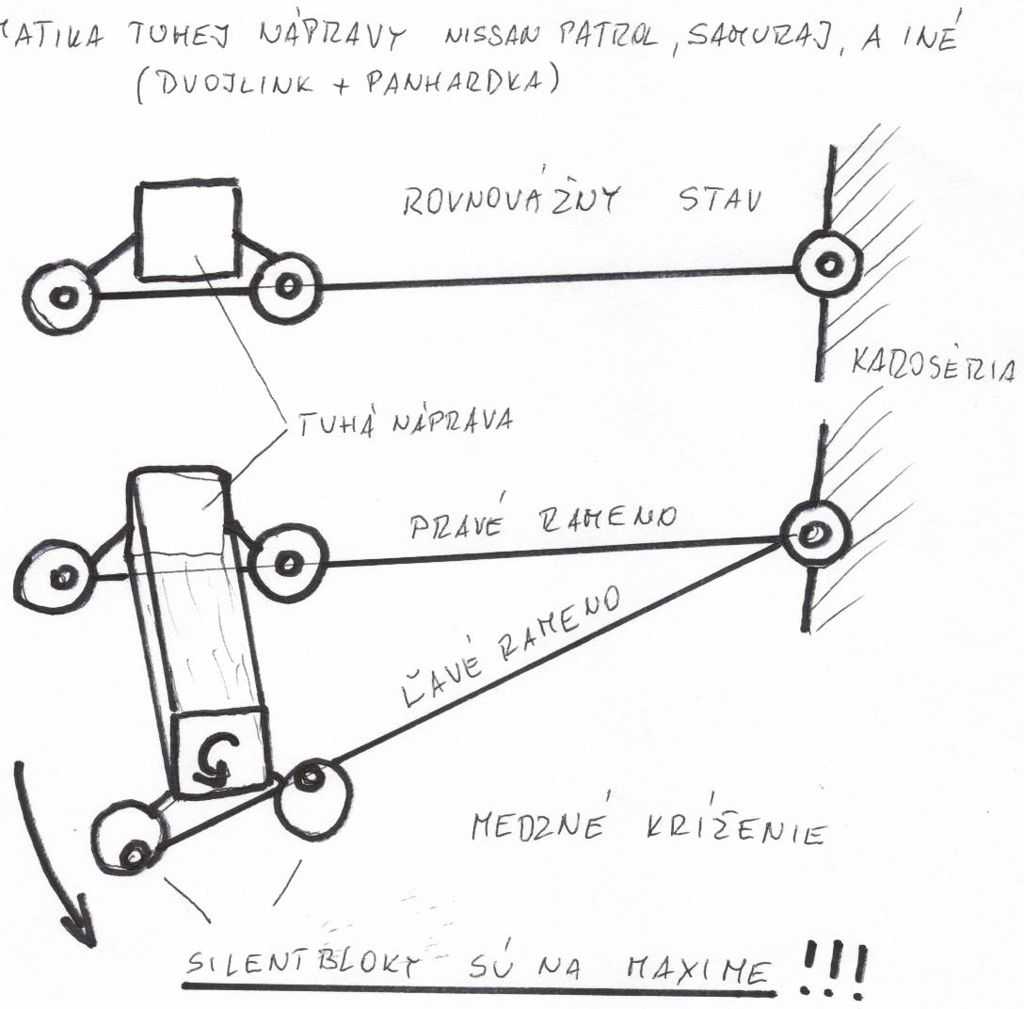 TUHEJ NÁPRAVY NISSAN PATROL, SAMURAJ, A INÉ
(DVOJLINK + PANHARDKA)
ROVNOVÁŽNY STAV
KAROSÉRIA
TUHÁ NÁPRAVA
PRAVÉ RAMENO
ĽAVÉ RAMENO
MEDZNÉ KRÍŽENIE
SILENTBLOKY SÚ NA MAXIME !!!